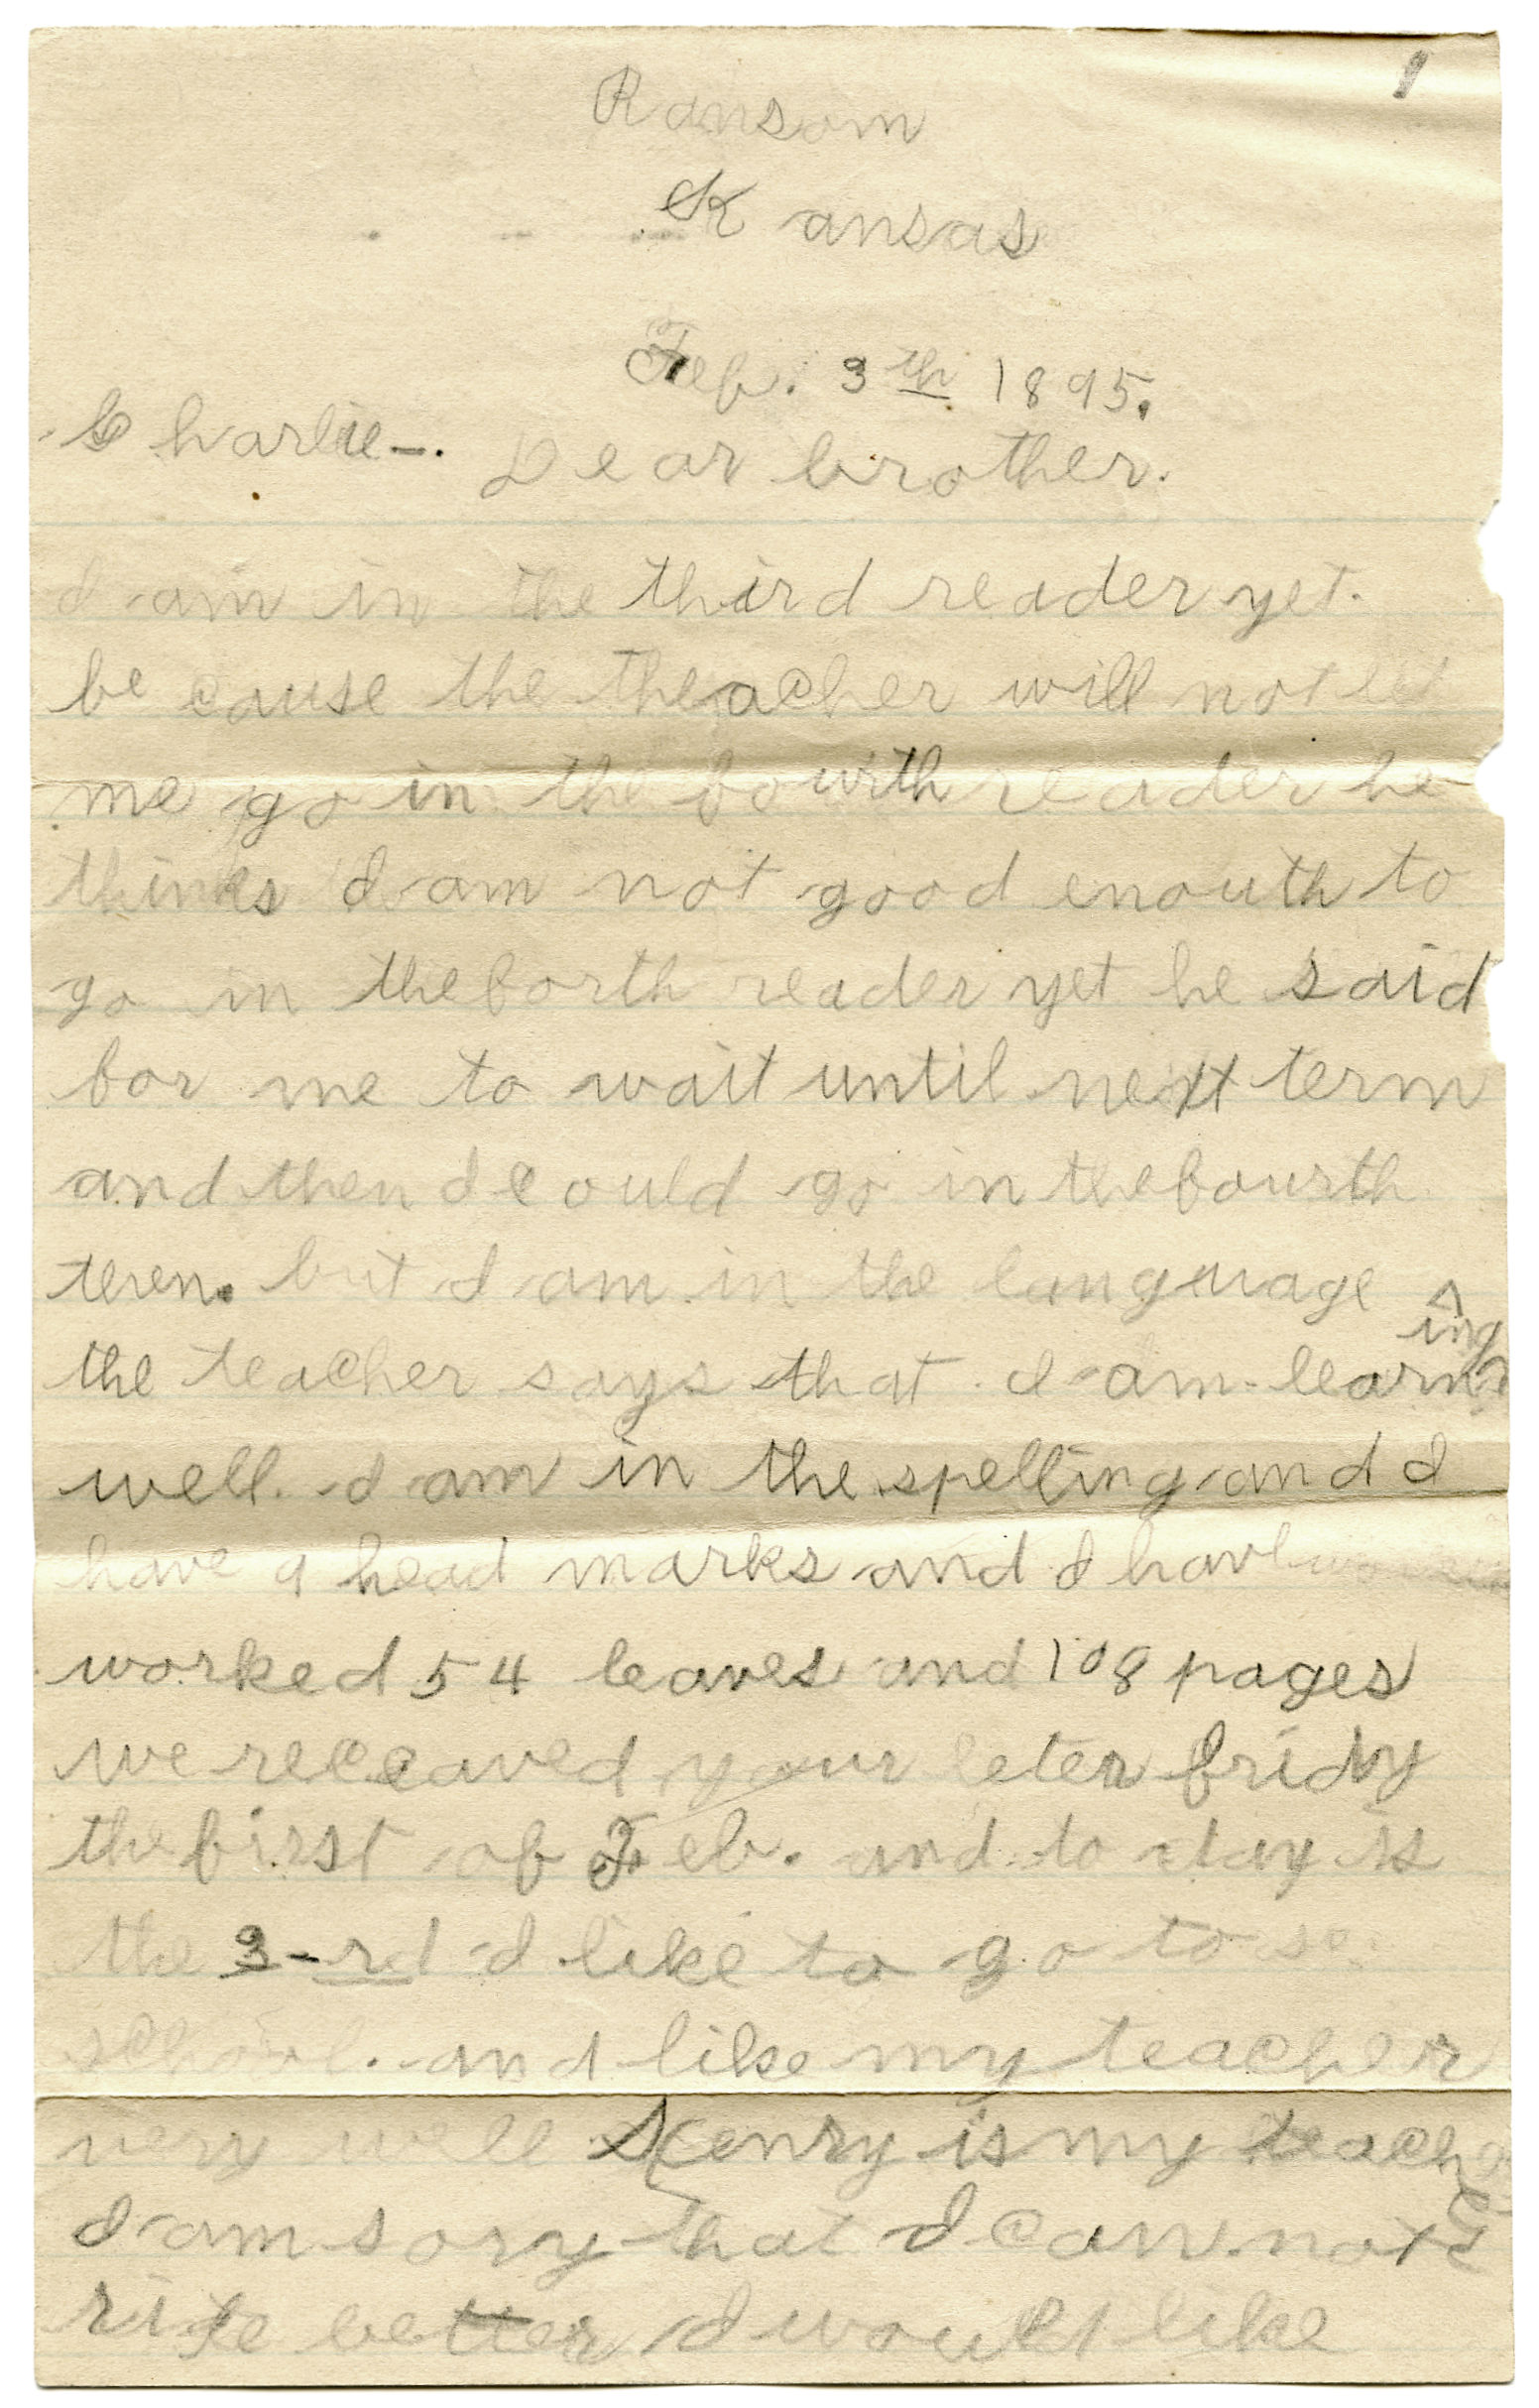 1
Ransom
Kansas
Feb. 3th 1895.
Charlie-. Dear brother.
I am in the third reader yet.
be cause the theacher will not let
me go in the fourth reader he
thinks I am not good enouth to
go in the forth reader yet he said
for me to wait until next term
and then I could go in the fourth
teren. but I am in the language
the teacher says that I am learning
well. I am in the spelling and I
have 9 head marks and I have
worked 54 leaves and 108 pages
we receaved your leter fridy
the first of Feb. and to day is
the 3-rd I like to go to sc
school. and like my teacher
very well Henry is my teacher
I am sory that I can not
rite better I would like